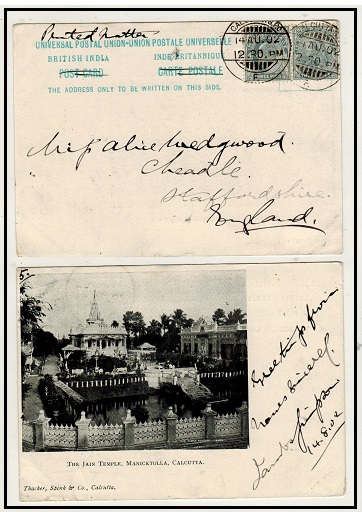 Printed Matter
UNIVERSAL POSTAL UNION-UNION POSTALE UNIVERSELLE
BRITISH INDIA INDE BRITANNIQUE
POST CARD CARTE POSTALE
THE ADDRESS ONLY TO BE WRITTEN ON THIS SIDE.
14 AU. 02
12.30 PM
Miss Alice Wedgwood.
Cheadle.
Staffordshire.
England.
5.
Greetings from
14.8.02
THE JAIN TEMPLE, MANICKTOLLA, CALCUTTA.
Thacker, Spink & Co., Calcutta.